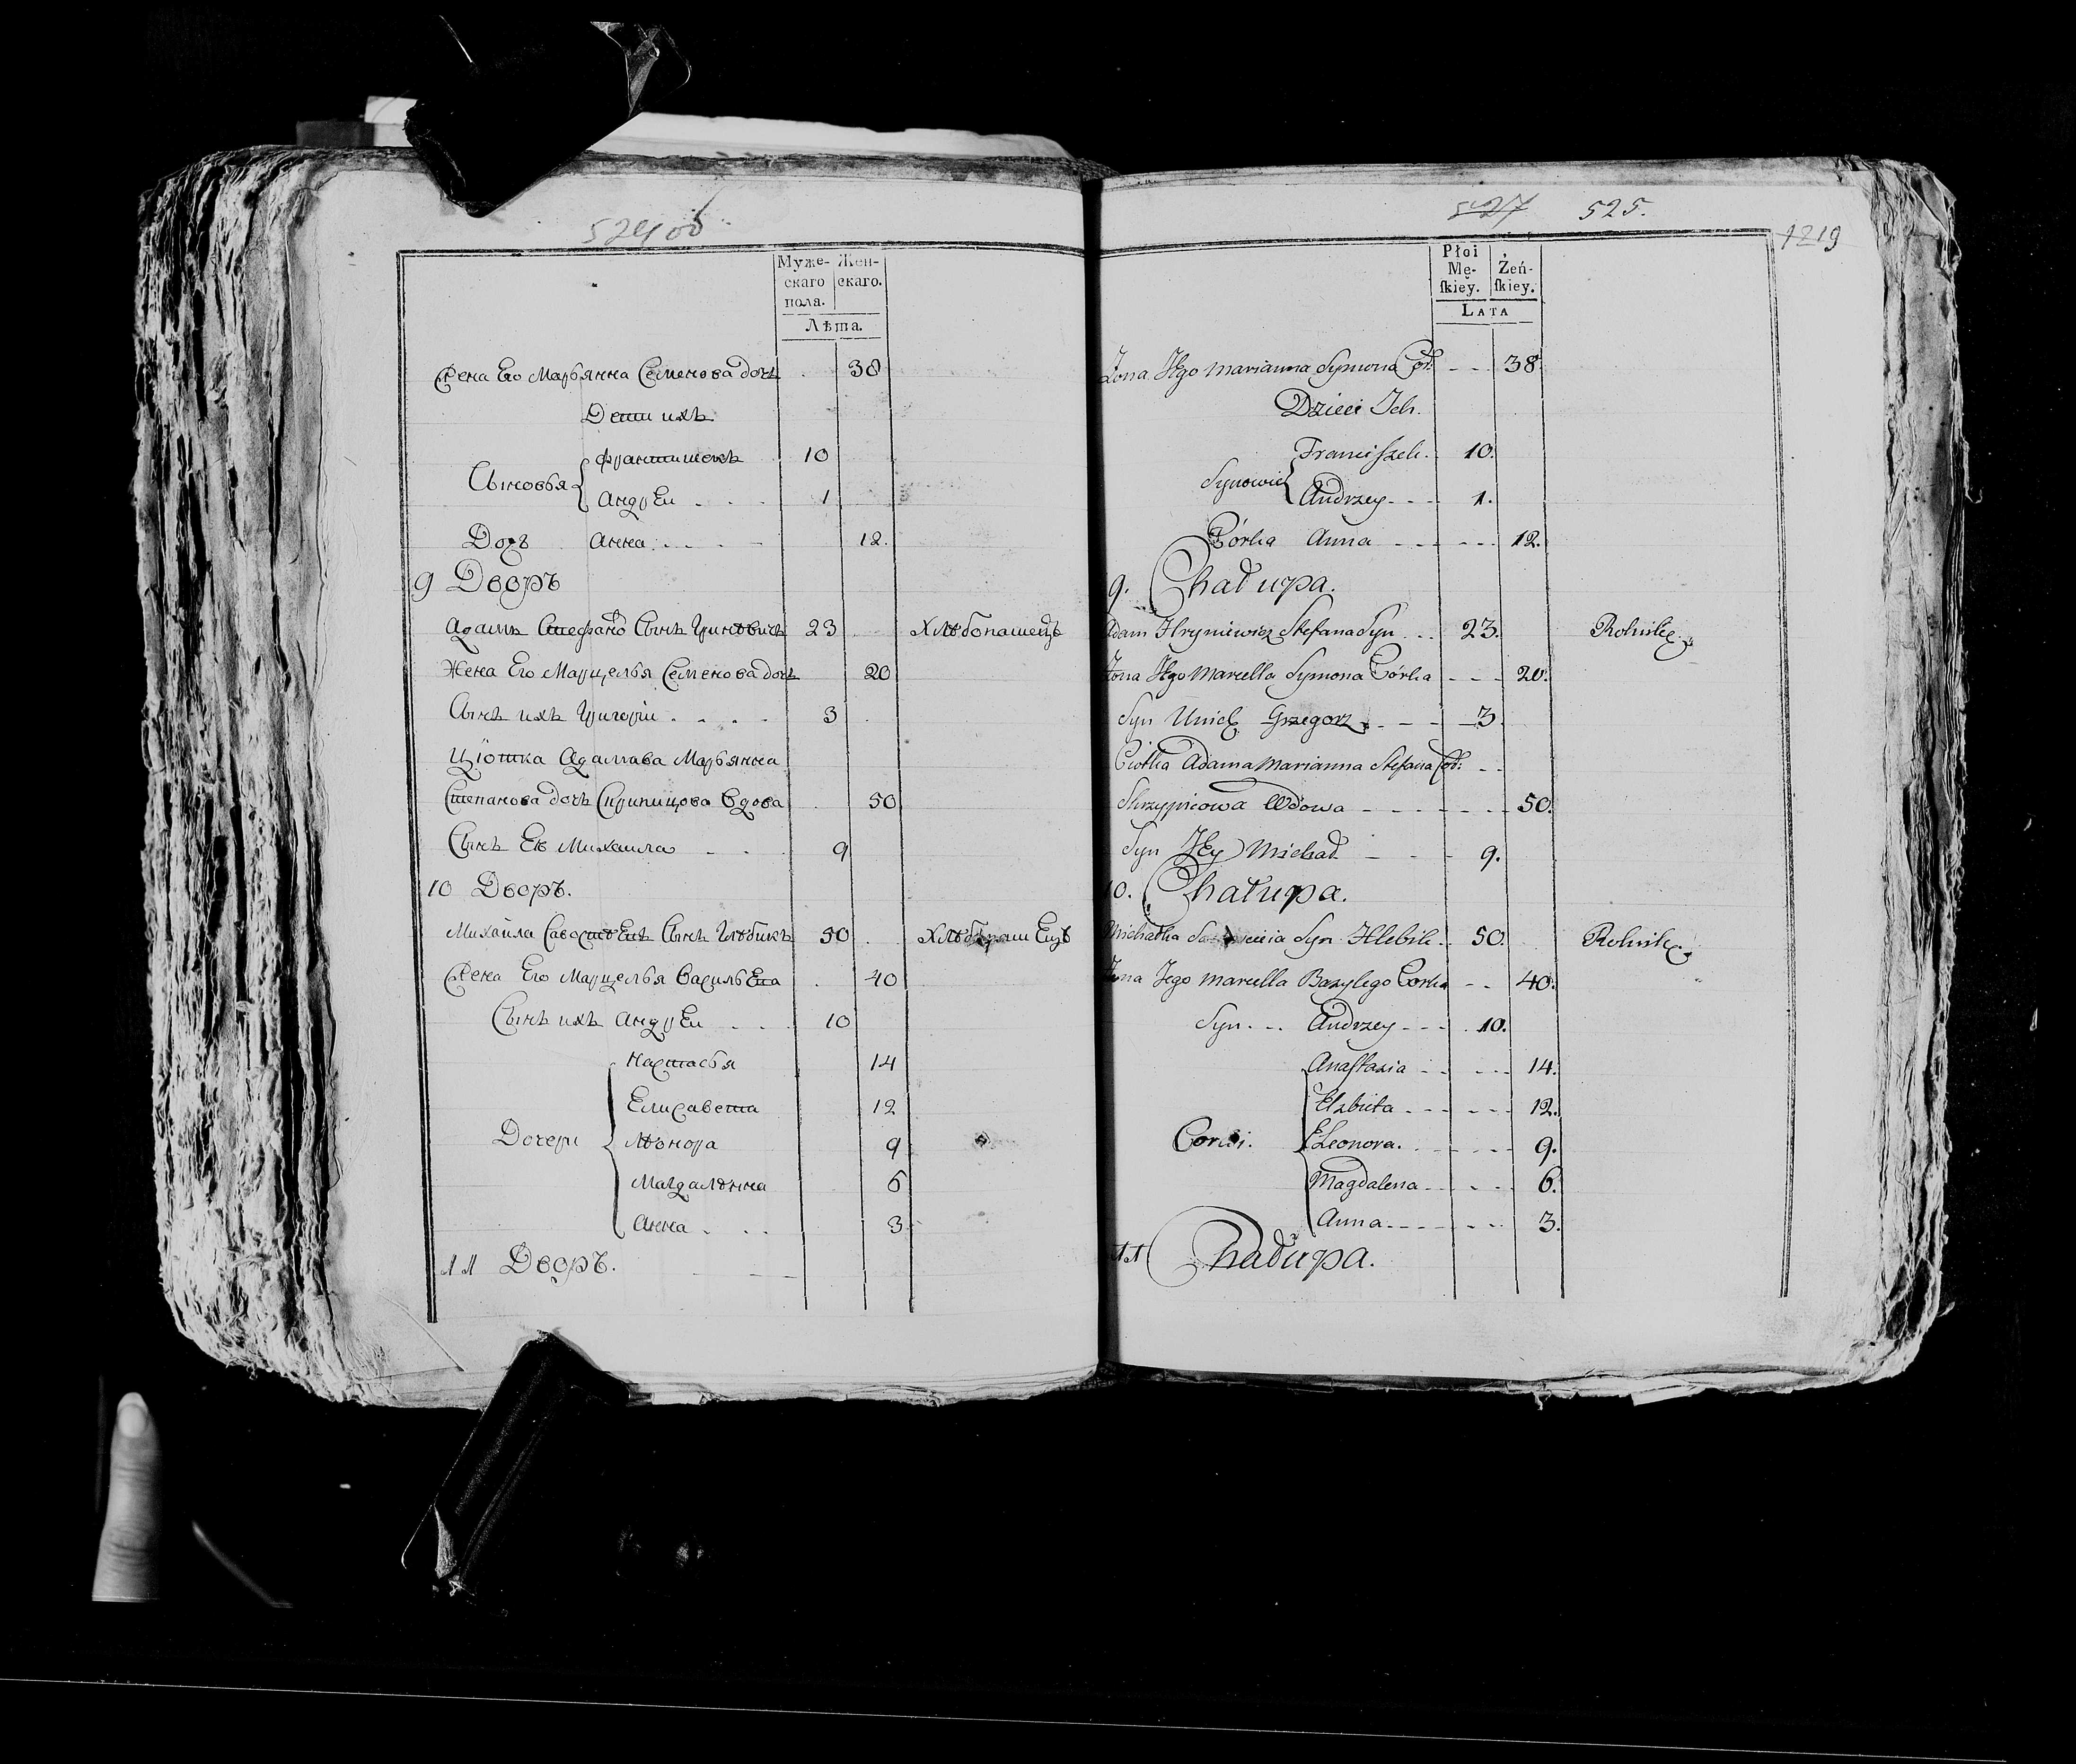 524 об
Муже- Жен-
скаго скаго.
пола.
Лѣта.
Жена Его Марьянна Семенова дочь 38
Дети ихъ
Францишекъ 10
Сыновья
Андрей 1
Дочь Анна 12.
9 Дворъ
Адамъ Стефановъ Сынъ Гриневичъ 23 Хлѣбопашецъ
Жена Его Марцелья Семенова дочь 20
Сынъ ихъ Григорiи 3
Цiотка Адамава Марьянна
Степанова дочь Скрипицова Вдова 50
Сынъ Еѣ Михаила 9
10 Дворъ.
Михаила Савостѣевъ Сынъ Глѣбикъ 50 Хлѣбопашецъ
Жена Его Марцелья Васильева 40
Сынъ ихъ Андрей 10
Настасья 14
Елисавета 12
Дочери Лѣонора 9
Магдалѣнна 6
Анна 3
11 Дворъ.
527 525.
1219
Płoi
Mę- Żeń-
ſkiey. ſkiey.
LATA
Zona Jego Marianna Symona Cór: 38
Dzieci Ich.
Franciſzek. 10.
Synowie
Andrzey 1.
Córka Anna 12.
9. Chałupa.
Adam Hryniewicz Stefana Syn 23. Rolnik.
Zona Jego Marcella Symona Córka 20.
Syn Unich Grzegorz 3.
Ciotka Adama Marianna Stefana Cór:
Skrzypicowa Wdowa 50.
Syn Jey Michał 9.
10. Chałupa.
Michałka Syn Hlebik. 50. Rolnik.
Zona Jego Marcella Bazylego Corka 40.
Syn Andrzey 10.
Anaſtazia 14.
Elzbieta 12.
Corki. Eleonora. 9.
Magdalena 6.
Anna 3.
11 Chałupa.